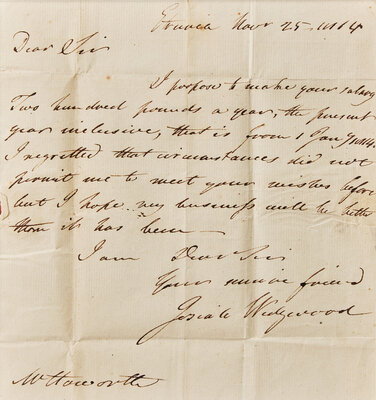 Etruria Novr 25. 1814
Dear Sir
I propose to make your salary
Two hundred pounds a year, the present
year inclusive, that is from 1 Jany 1814.
I regretted that circumstances did not
permit me to meet your wishes before
but I hope my business will be better
than it has been
I am Dear Sir
Your sincere friend
Josiah Wedgwood
Mr Howorth